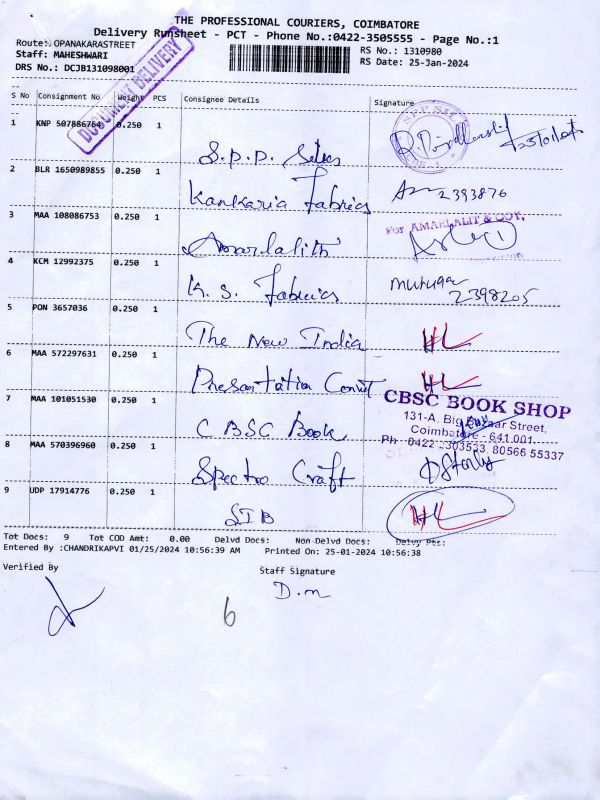 THE PROFESSIONAL COURIERS, COIMBATORE
Delivery Runsheet - PCT - Phone No.:0422-3505555 - Page No.:1
Route: OPANAKARASTREET
Staff: MAHESHWARI
DRS No.: DCJB131098001
RS No.: 1310980
RS Date: 25-Jan-2024
DOCUMENT DELIVERY
S No Consignment No Weight PCS Consignee Details Signature
1 KNP 507886764 0.250 1
S.P.P. Silks
2 BLR 1650989855 0.250 1
Kankaria Fabrics 2393876
3 MAA 108086753 0.250 1
For AMARLALIT & COY.
Amarlalith
4 KCM 12992375 0.250 1
K. S. Fabrics Murugan 2398205
5 PON 3657036 0.250 1
The New India HL
6 MAA 572297631 0.250 1
Presentation HL
7 MAA 101051530 0.250 1
CBSC BOOK SHOP
131-A, Big Bazaar Street,
Coimbatore - 641 001.
CBSC Book
8 MAA 570396960 0.250 1
Ph : 0422 - 303533, 80566 55337
Spectro Craft
9 UDP 17914776 0.250 1
SIB HL
Tot Docs: 9 Tot COD Amt: 0.00 Delvd Docs: Non Delvd Docs: Delvy Pts:
Entered By :CHANDRIKAPVI 01/25/2024 10:56:39 AM Printed On: 25-01-2024 10:56:38
Verified By Staff Signature
D.m
6